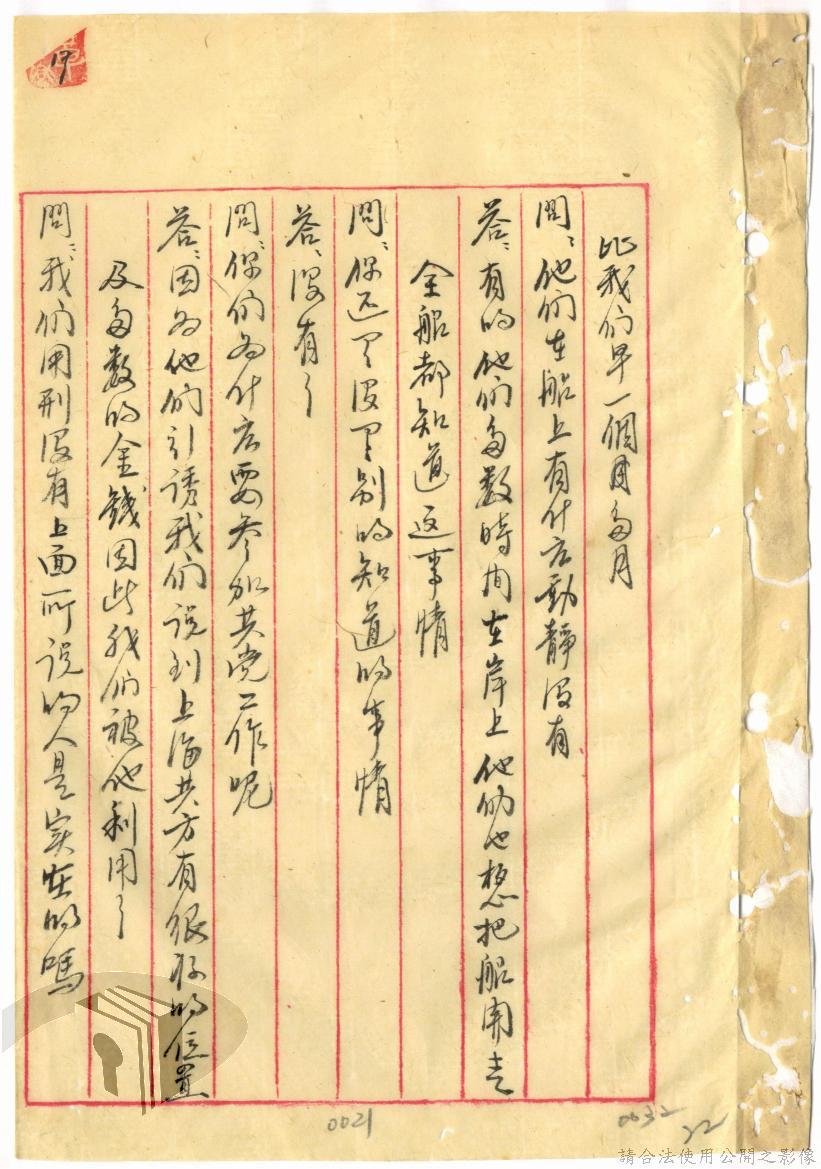 17
比我们早一個月多月
問:他们在船上有什么動静没有
答:有的他们多数時间在岸上他们也想把船開走
全船都知道这事情
問:你还有没有别的知道的事情
答:没有了
問:你们为什么要参加共党工作呢
答:因为他们引诱我们说到上海共方有很好的位置
及多数的金錢因此我们被他利用了
問:我们用刑没有上面所说的人是実在的嗎
0021
0032
22
請合法使用公開之影像